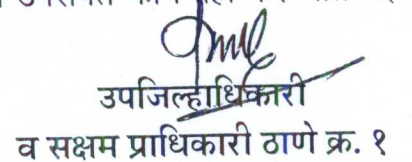 उपजिल्हाधिकारी
व सक्षम प्राधिकारी ठाणे क्र. १